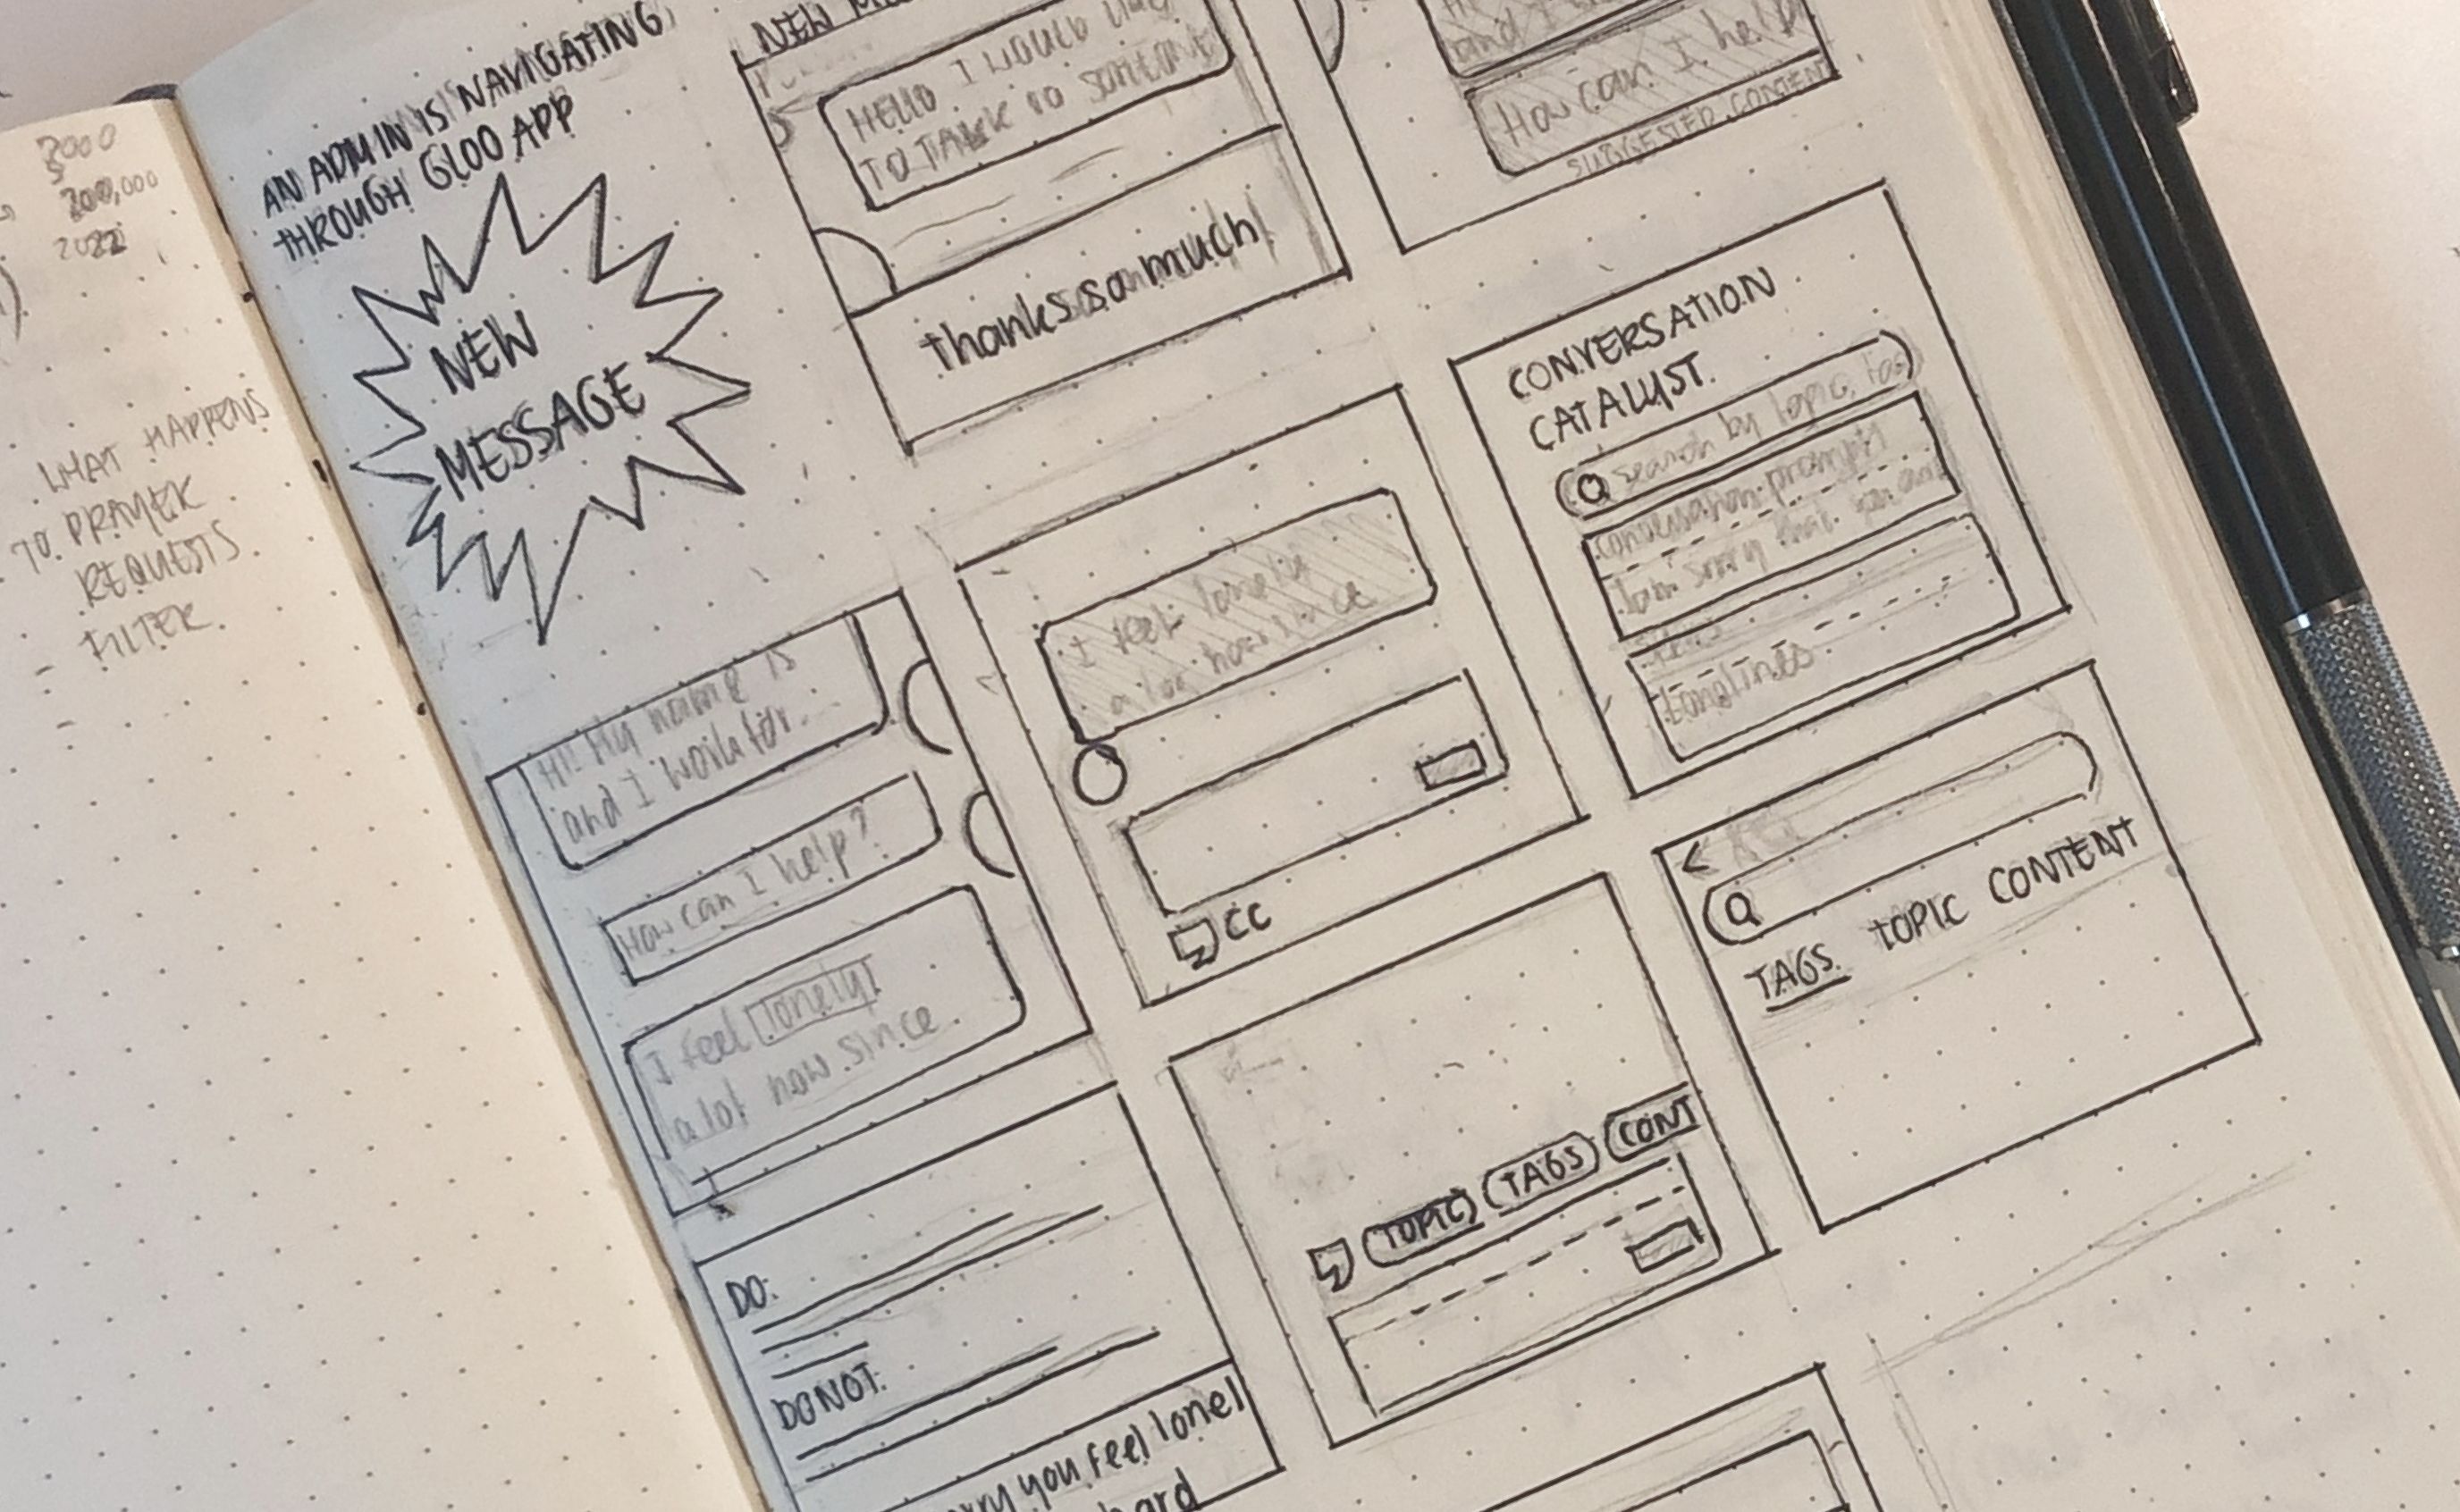 3000
200,000
2022
WHAT HAPPENS
TO PRAYER
REQUESTS
- FILTER
-
AN ADMIN IS NAVIGATING
THROUGH GLOO APP
NEW
MESSAGE
NEW
HELLO I WOULD LIKE
TO TALK TO SOMEONE
thanks so much
and I
How can I help
SUGGESTED CONTENT
Hi! My name is
and I work for
How can I help?
I feel lonely
a lot now since
I feel lonely
a lot now since
CC
CONVERSATION
CATALYST
search by topic,
conversation prompts
I am sorry that you are
Loneliness
DO:
DO NOT:
you feel lonel
hard
TOPIC TAGS CONT
TAGS TOPIC CONTENT